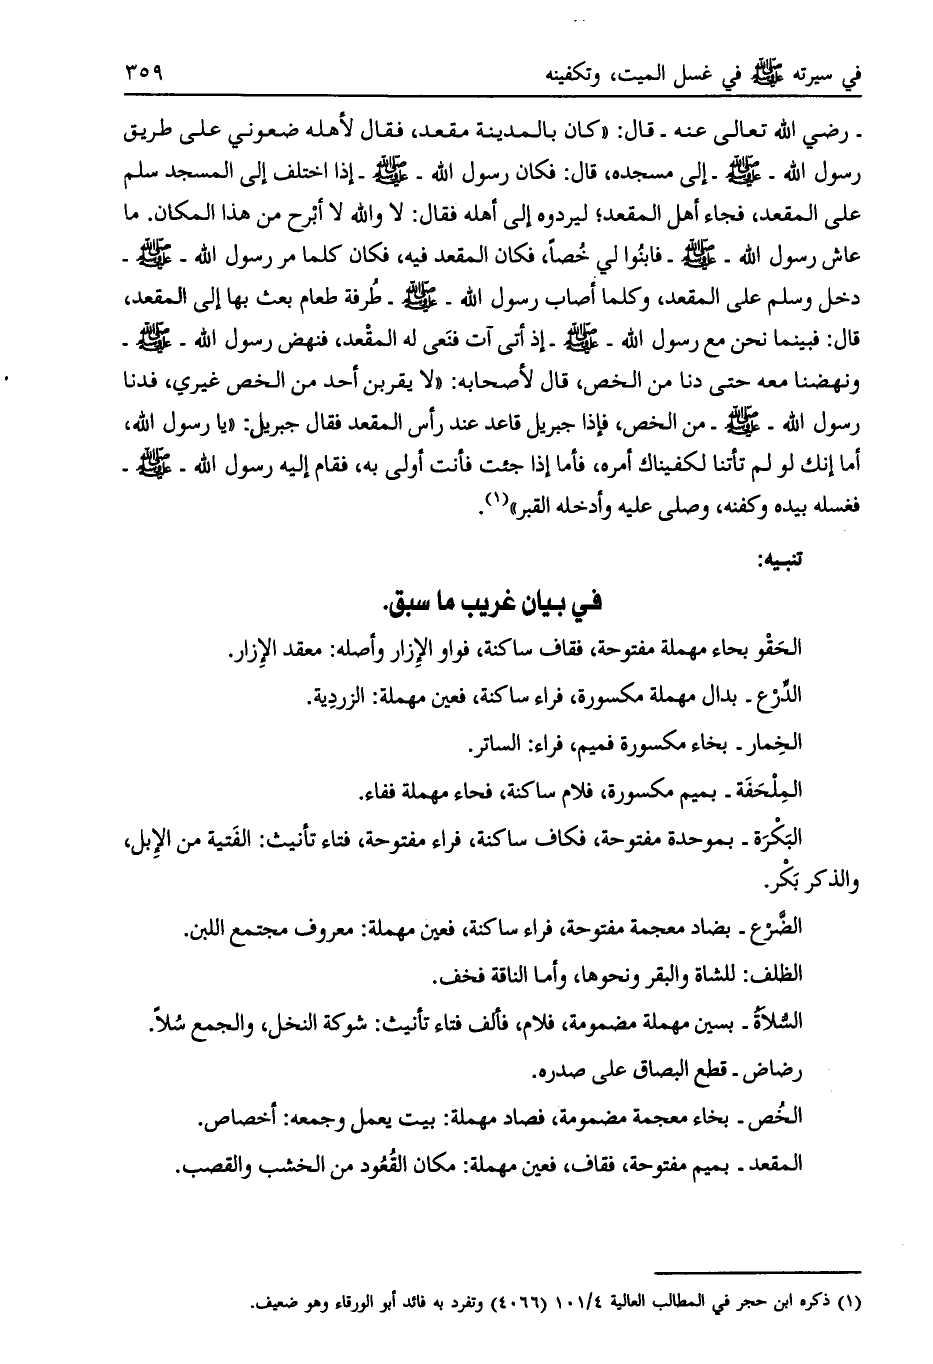 في سيرته ﷺ في غسل الميت، وتكفينه ٣٥٩
ـ رضي الله تعالى عنه ـ قال: «كان بالمدينة مقعد، فقال لأهله ضعوني على طريق
رسول الله ـ ﷺ ـ إلى مسجده، قال: فكان رسول الله ـ ﷺ ـ إذا اختلف إلى المسجد سلم
على المقعد، فجاء أهل المقعد؛ ليردوه إلى أهله فقال: لا والله لا أبْرح من هذا المكان. ما
عاش رسول الله ـ ﷺ ـ فابنُوا لي خُصاً، فكان المقعد فيه، فكان كلما مر رسول الله ـ ﷺ ـ
دخل وسلم على المقعد، وكلما أصاب رسول الله ـ ﷺ ـ طُرفة طعام بعث بها إلى المقعد،
قال: فبينما نحن مع رسول الله ـ ﷺ ـ إذ أتى آت فنَعى له المقْعد، فنهض رسول الله ـ ﷺ ـ
ونهضنا معه حتى دنا من الخص، قال لأصحابه: «لا يقربن أحد من الخص غيري، فدنا
رسول الله ـ ﷺ ـ من الخص، فإذا جبريل قاعد عند رأس المقعد فقال جبريل: «يا رسول الله،
أما إنك لو لم تأتنا لكفيناك أمره، فأما إذا جئت فأنت أولى به، فقام إليه رسول الله ـ ﷺ ـ
فغسله بيده وكفنه، وصلى عليه وأدخله القبر»(١).
تنبيه:
في بيان غريب ما سبق.
الحَقْو بحاء مهملة مفتوحة، فقاف ساكنة، فواو الإزار وأصله: معقد الإِزار.
الدِّرْع ـ بدال مهملة مكسورة، فراء ساكنة، فعين مهملة: الزردِية.
الخِمار ـ بخاء مكسورة فميم، فراء: الساتر.
المِلْحَفَة ـ بميم مكسورة، فلام ساكنة، فحاء مهملة ففاء.
البَكْرَة ـ بموحدة مفتوحة، فكاف ساكنة، فراء مفتوحة، فتاء تأنيث: الفَتية من الإِبل،
والذكر بَكْر.
الضَّرْع ـ بضاد معجمة مفتوحة، فراء ساكنة، فعين مهملة: معروف مجتمع اللبن.
الظلف: للشاة والبقر ونحوها، وأما الناقة فخف.
السُّلاَةُ ـ بسين مهملة مضمومة، فلام، فألف فتاء تأنيث: شوكة النخل، والجمع سُلاً.
رضاض ـ قطع البصاق على صدره.
الخُص ـ بخاء معجمة مضمومة، فصاد مهملة: بيت يعمل وجمعه: أخصاص.
المقعد ـ بميم مفتوحة، فقاف، فعين مهملة: مكان القُعُود من الخشب والقصب.
(١) ذكره ابن حجر في المطالب العالية ١٠١/٤ (٤٠٦٦) وتفرد به فائد أبو الورقاء وهو ضعيف.